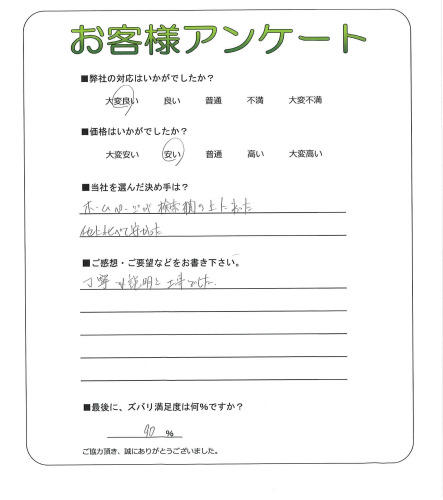 お客様アンケート
■弊社の対応はいかがでしたか?
大変良い 良い 普通 不満 大変不満
■価格はいかがでしたか?
大変安い 安い 普通 高い 大変高い
■当社を選んだ決め手は?
ホームページが検索欄の上にあった
他と比べて安かった
■ご感想・ご要望などをお書き下さい。
丁寧な説明と工事でした.
■最後に、ズバリ満足度は何%ですか?
90 %
ご協力頂き、誠にありがとうございました。